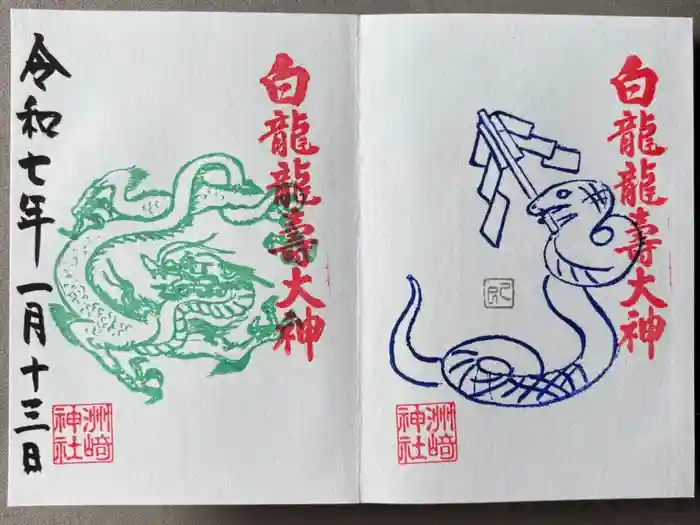 白龍龍壽大神
巳
洲崎
神社
白龍龍壽大神
令和七年一月十三日
洲崎
神社